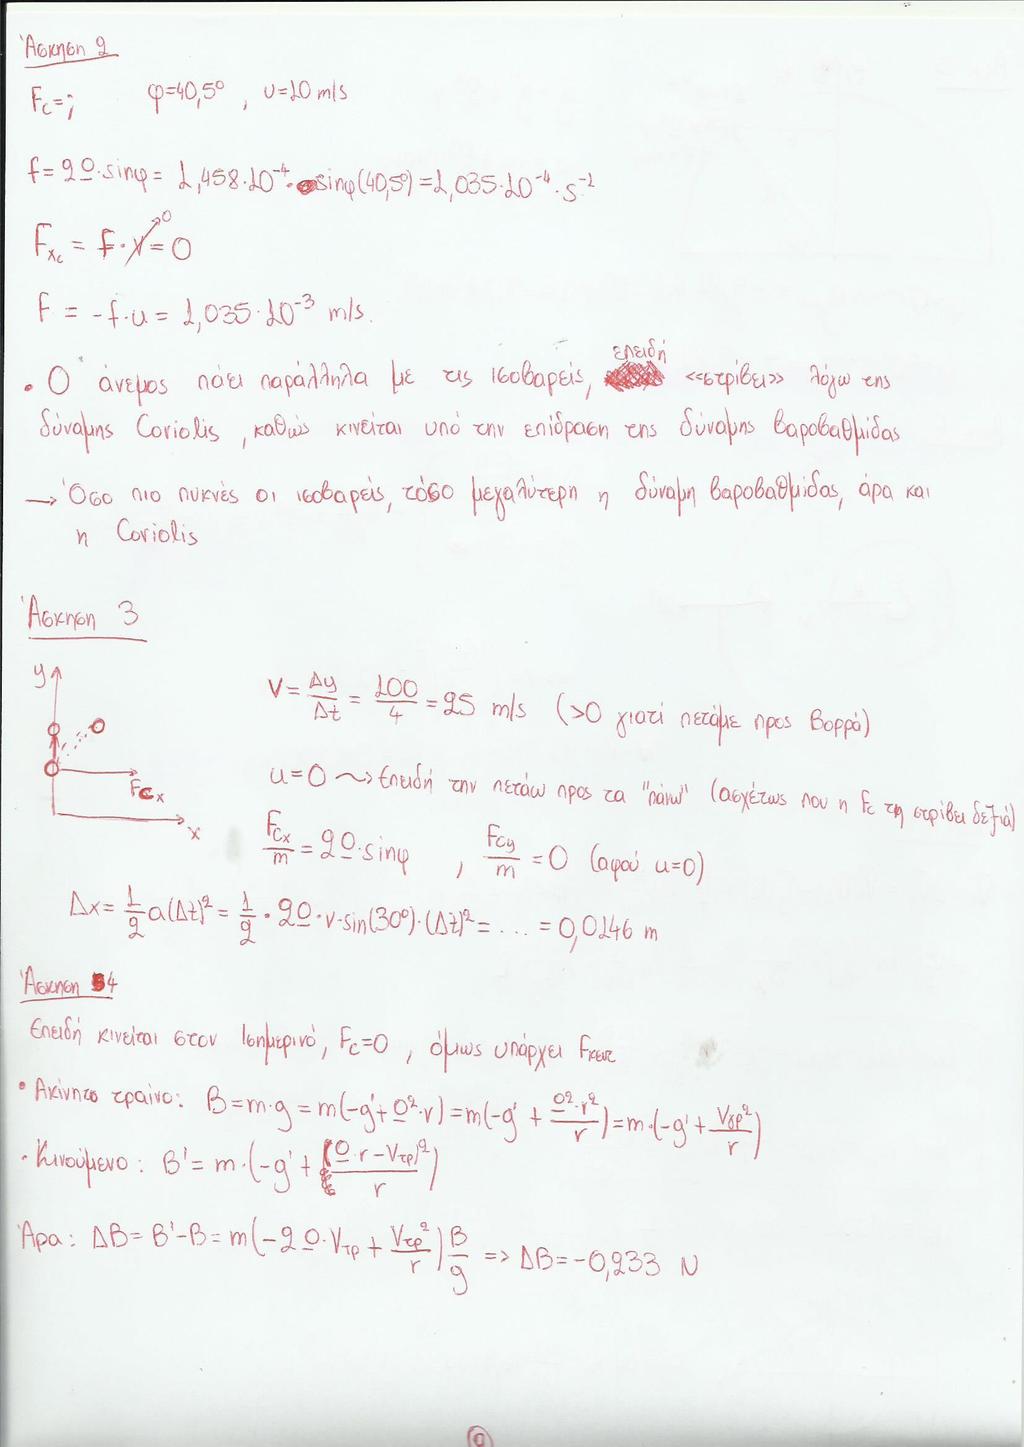 Άσκηση 2
Fc=; φ=40,5° , υ=10 m/s
f=2Ω·sinφ= 1,458·10⁻⁴· sinφ(40,5°)=1,035·10⁻⁴·s⁻¹
Fxc = f·v=0 0
F = -f·u = 1,035·10⁻³ m/s.
• Ο άνεμος πάει παράλληλα με τις ισοβαρείς, επειδή «στρίβει» λόγω της
δύναμης Coriolis , καθώς κινείται υπό την επίδραση της δύναμης βαροβαθμίδας
→ Όσο πιο πυκνές οι ισοβαρείς, τόσο μεγαλύτερη η δύναμη βαροβαθμίδας, άρα και
η Coriolis
Άσκηση 3
y
Fcx
x
V = Δy/Δt = 100/4 = 25 m/s (>0 γιατί πετάμε προς Βορρά)
u=0 ~> Επειδή την πετάω προς τα "πάνω" (ασχέτως που η Fc τη στρίβει δεξιά)
Fcx/m = 2Ω·sinφ , Fcy/m = 0 (αφού u=0)
Δx = 1/2 a(Δt)² = 1/2 · 2Ω·v·sin(30°)·(Δt)² = ... = 0,0146 m
Άσκηση 4
Επειδή κινείται στον Ισημερινό, Fc=0 , όμως υπάρχει Fκεντ
• Ακίνητο τραίνο: B=m·g = m(-g'+Ω²·r)=m(-g' + Ω²·r²/r)=m·(-g'+ Vγρ²/r)
• Κινούμενο: B'= m·(-g' + (Ω·r-Vτρ)²/r)
Άρα: ΔB= B'-B= m(-2Ω·Vτρ + Vτρ²/r) B/g => ΔB=-0,233 N
2